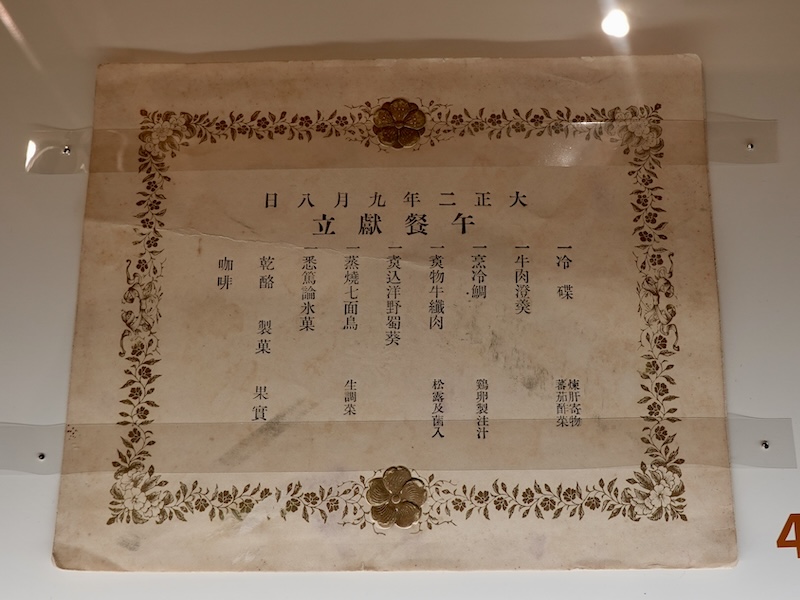 大正二年九月八日
午餐獻立
一冷碟 煉肝寄物
蕃茄酢菜
一牛肉澄羹
一烹冷鯛 鶏卵製注汁
一煑物牛纖肉 松露及菌入
一煑込洋野蜀葵
一蒸燒七面鳥 生調菜
一悉篤論氷菓
乾酪 製菓 果實
咖啡
4